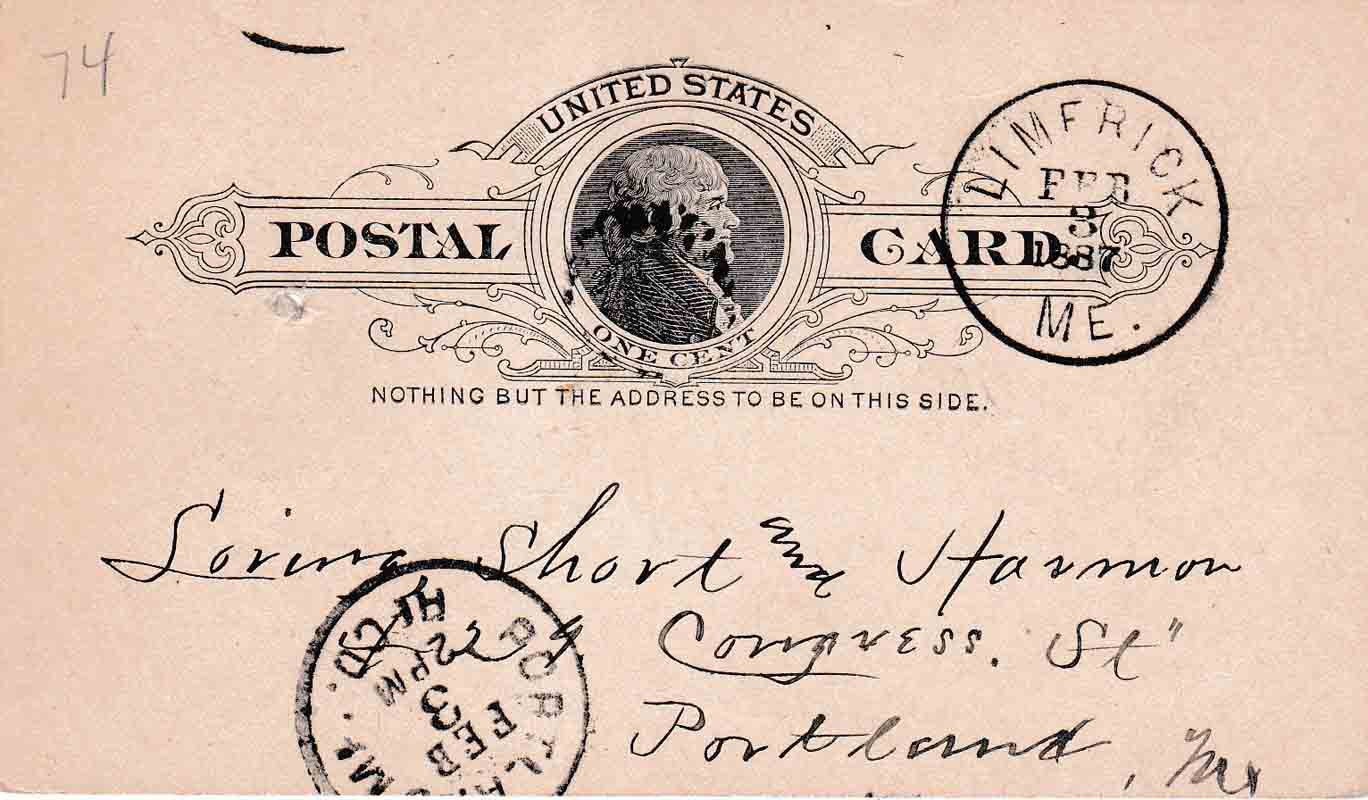 74
UNITED STATES
POSTAL CARD.
ONE CENT
NOTHING BUT THE ADDRESS TO BE ON THIS SIDE.
LIMERICK
FEB
3
1887
ME.
Loring Short and Harmon
Congress. St"
Portland, Me
PORTLAND
FEB
3
2 PM
REC'D.